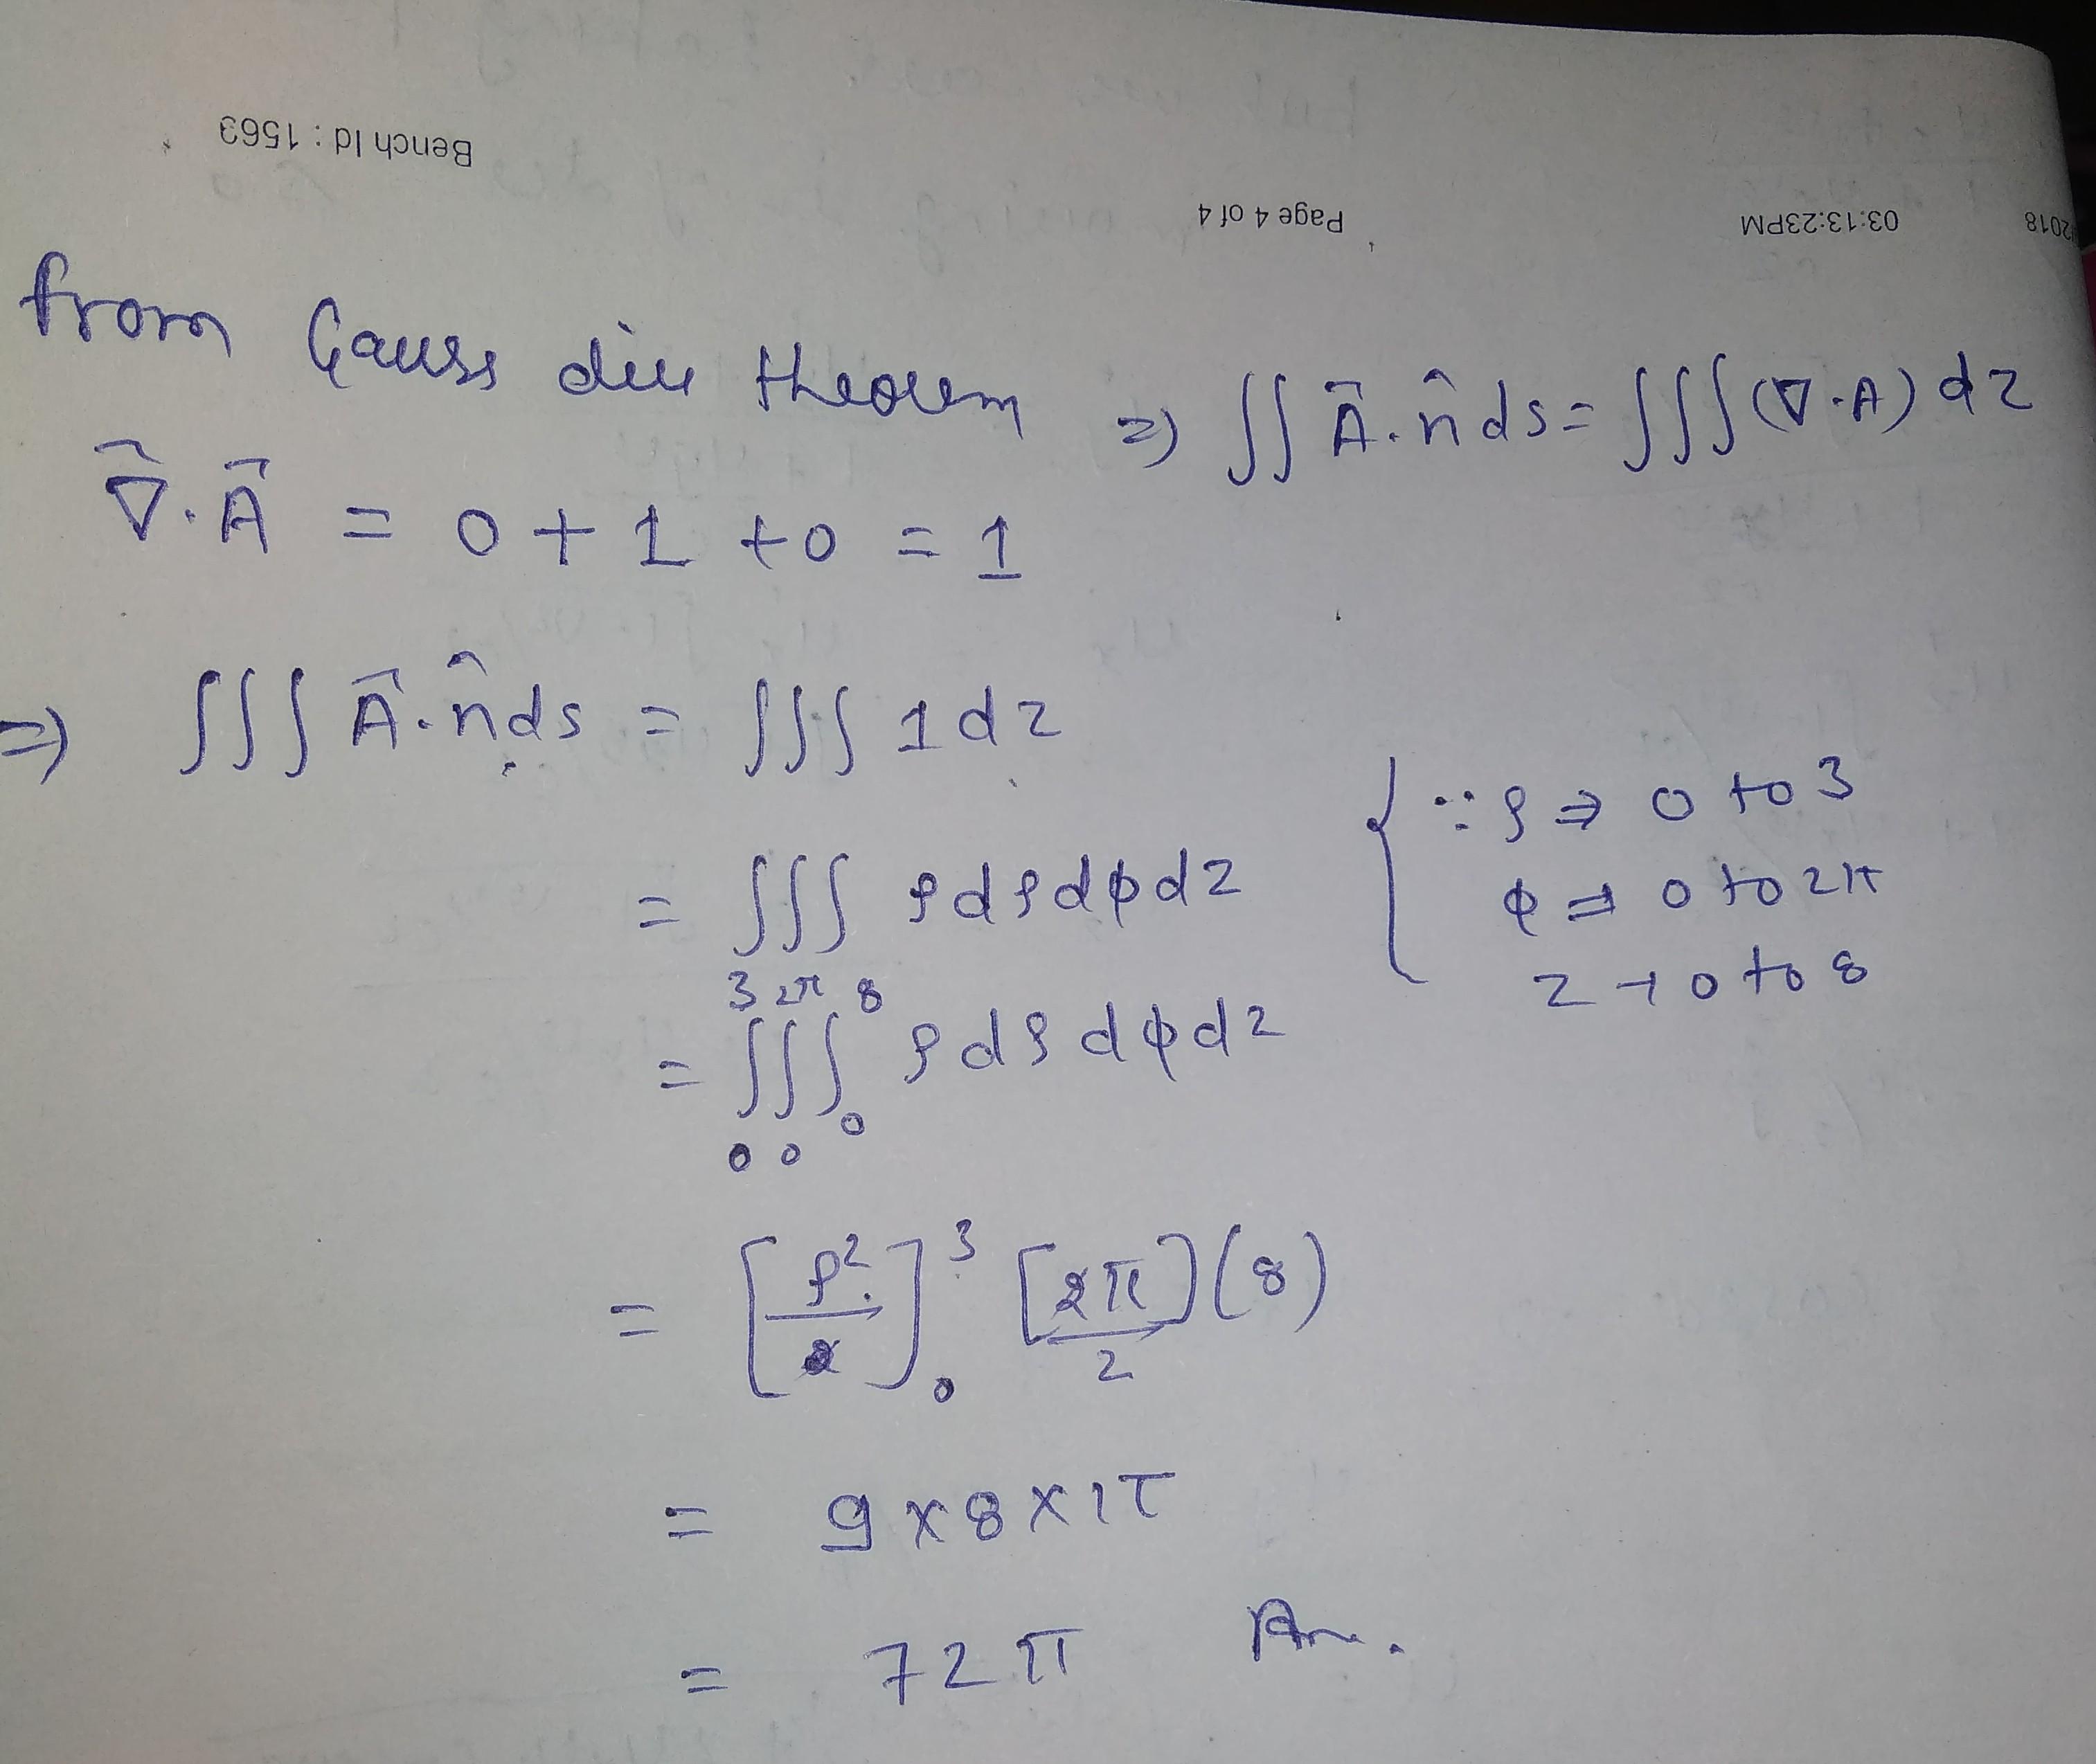 Bench Id : 1563
Page 4 of 4
03:13:23PM
2018
from Gauss div theorem ⇒ ∬ A⃗.n̂ ds = ∭(∇.A) dz
∇⃗.A⃗ = 0 + 1 + 0 = 1
⇒ ∭ A⃗.n̂ds = ∭ 1dz
= ∭ ρdρdφdz
{∵ ρ ⇒ 0 to 3
φ ⇒ 0 to 2π
z → 0 to 8
= ∫₀³ ∫₀²π ∫₀⁸ ρdρdφdz
= [ρ²/2]₀³ [2π/2] (8)
= 9 x 8 x π
= 72 π Ans.